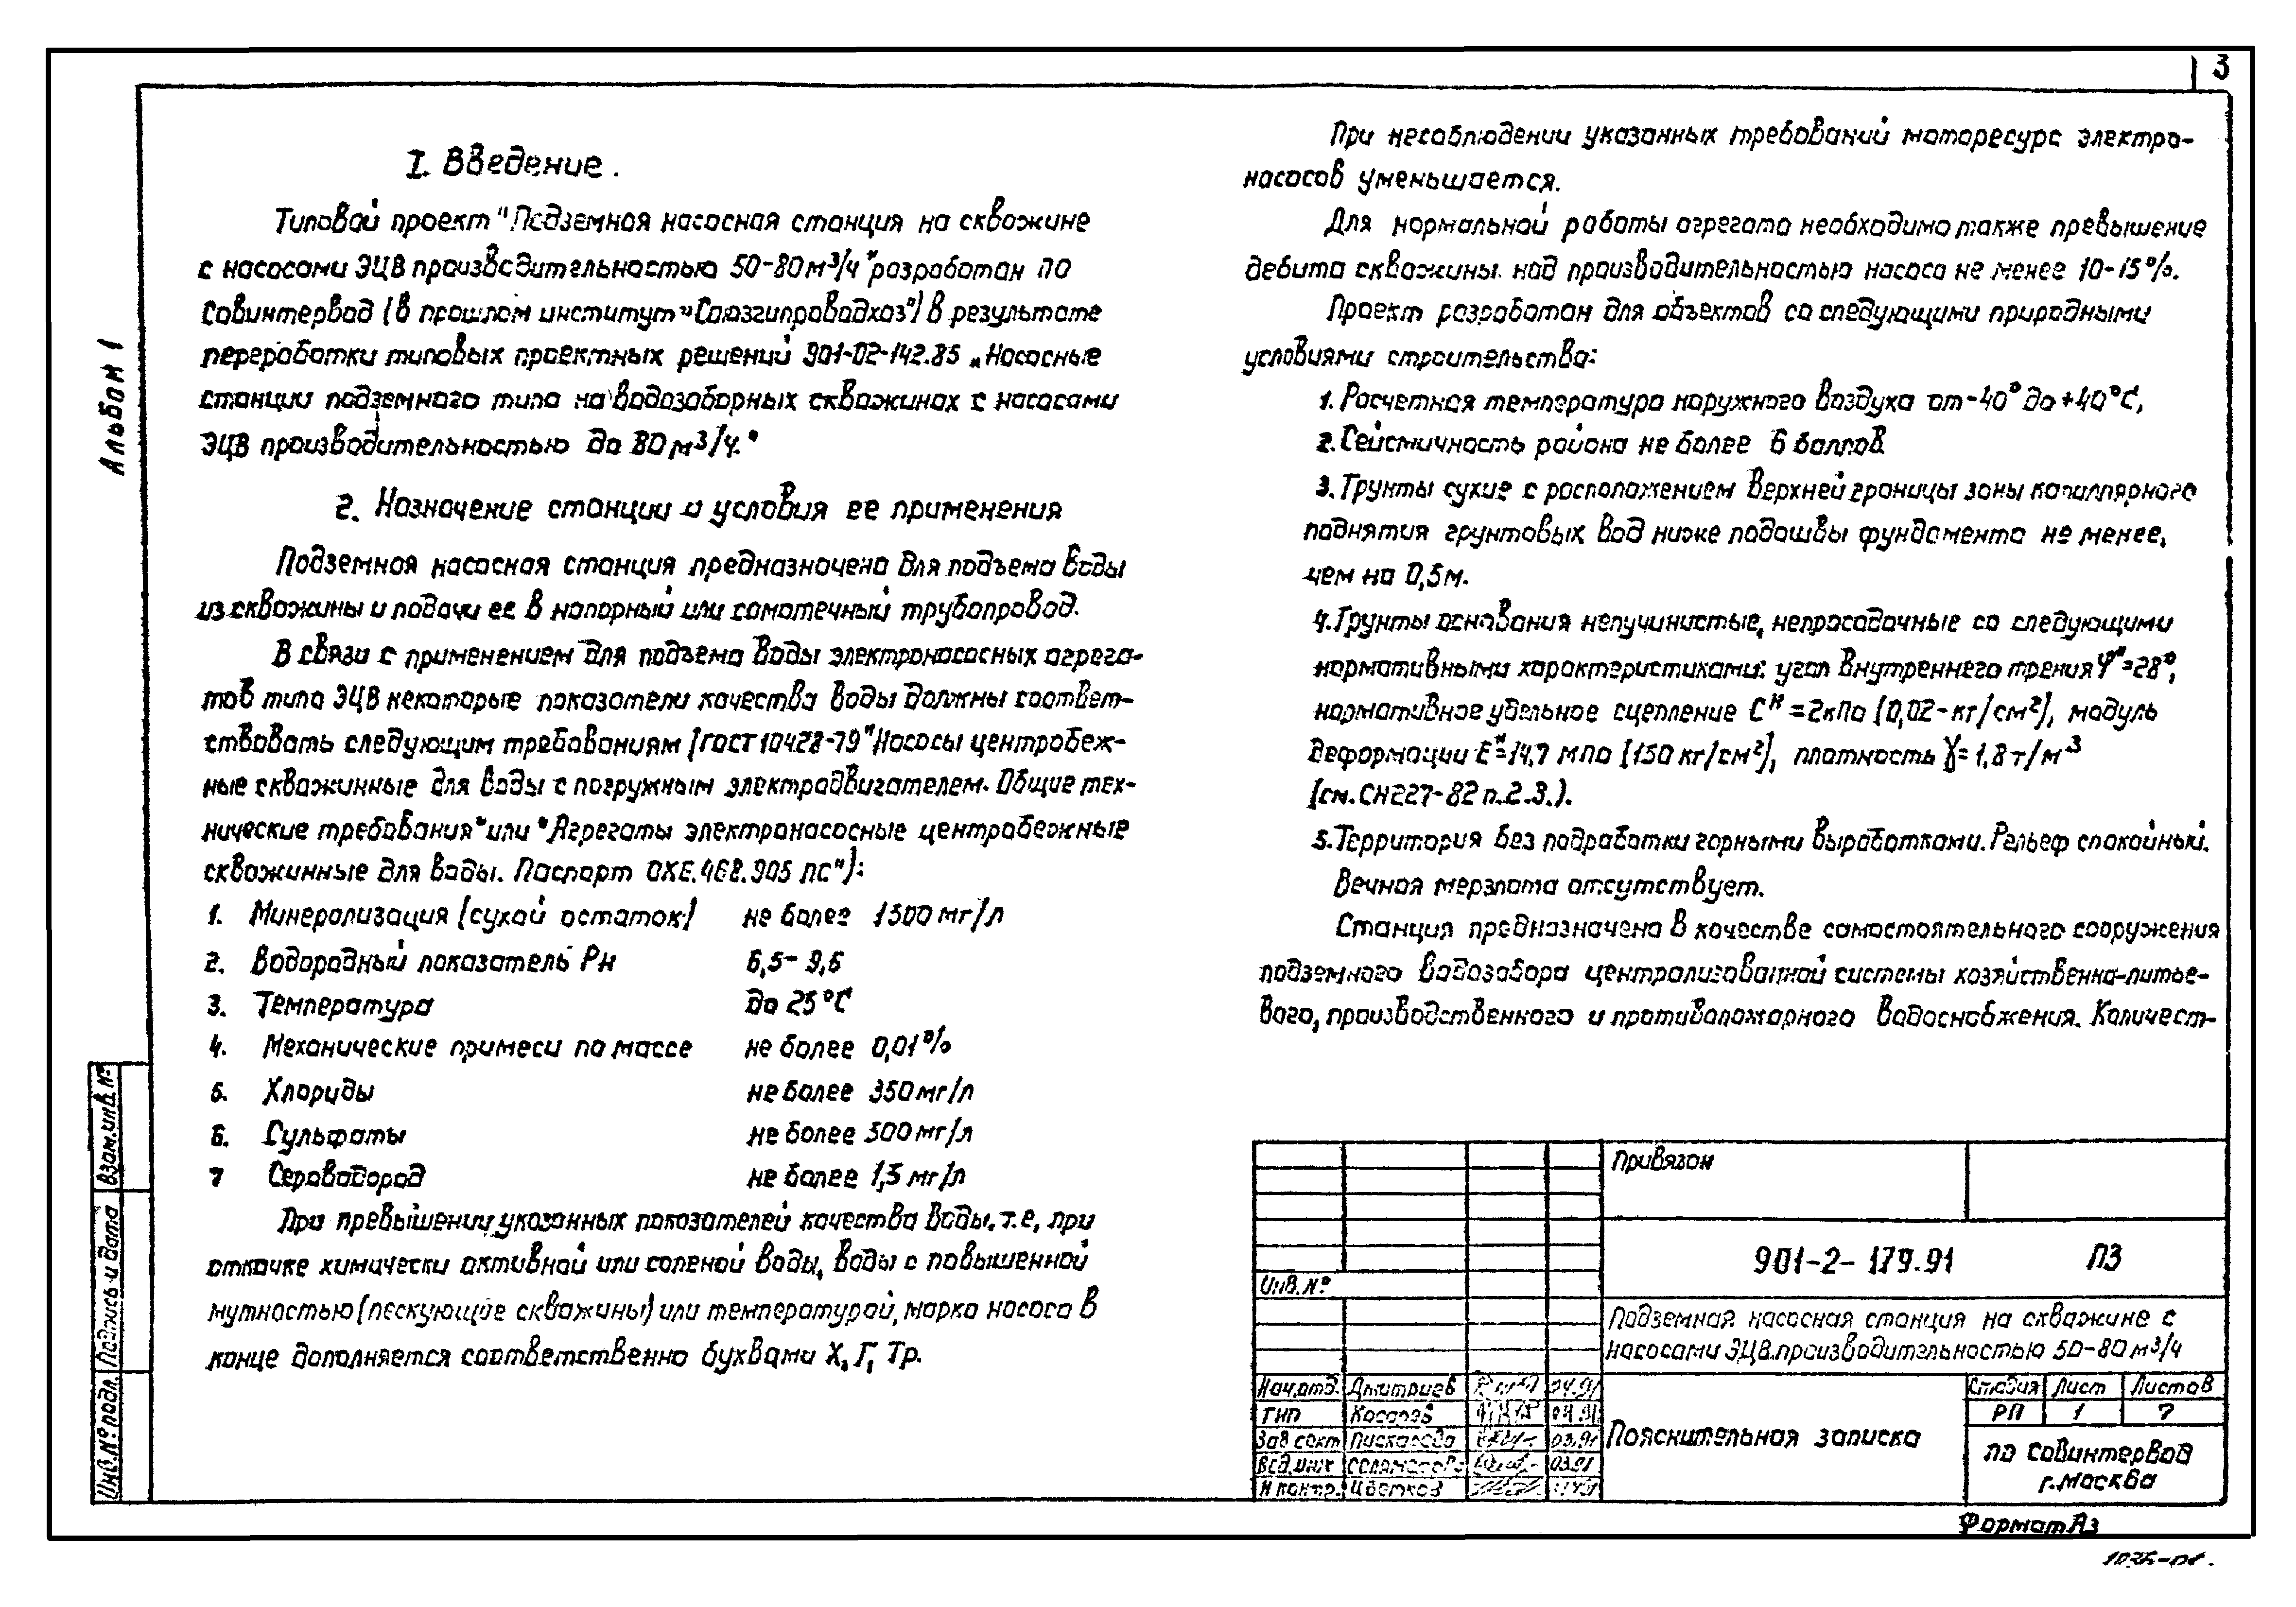 3
Альбом 1
1. Введение.
Типовой проект "Подземная насосная станция на скважине
с насосами ЭЦВ производительностью 50-80 м³/ч" разработан ПО
Совинтервод (в прошлом институт "Союзгипроводхоз") в результате
переработки типовых проектных решений 901-02-142.85 „Насосные
станции подземного типа на водозаборных скважинах с насосами
ЭЦВ производительностью до 80 м³/ч."
2. Назначение станции и условия ее применения
Подземная насосная станция предназначена для подъема воды
из скважины и подачи ее в напорный или самотечный трубопровод.
В связи с применением для подъема воды электронасосных агрега-
тов типа ЭЦВ некоторые показатели качества воды должны соответ-
ствовать следующим требованиям (ГОСТ 10428-79 "Насосы центробеж-
ные скважинные для воды с погружным электродвигателем. Общие тех-
нические требования" или "Агрегаты электронасосные центробежные
скважинные для воды. Паспорт ОХЕ.468.905 ПС"):
1. Минерализация (сухой остаток) не более 1500 мг/л
2. Водородный показатель PH 6,5-9,5
3. Температура до 25°С
4. Механические примеси по массе не более 0,01%
5. Хлориды не более 350 мг/л
6. Сульфаты не более 500 мг/л
7 Сероводород не более 1,5 мг/л
При превышении указанных показателей качества воды, т.е, при
откачке химически активной или соленой воды, воды с повышенной
мутностью (пескующие скважины) или температурой, марка насоса в
конце дополняется соответственно буквами Х, Г, Тр.
При несоблюдении указанных требований моторесурс электро-
насосов уменьшается.
Для нормальной работы агрегата необходимо также превышение
дебита скважины над производительностью насоса не менее 10-15%.
Проект разработан для объектов со следующими природными
условиями строительства:
1. Расчетная температура наружного воздуха от -40° до +40°С,
2. Сейсмичность района не более 6 баллов
3. Грунты сухие с расположением верхней границы зоны капиллярного
поднятия грунтовых вод ниже подошвы фундамента не менее,
чем на 0,5м.
4. Грунты основания непучинистые, непросадочные со следующими
нормативными характеристиками: угол внутреннего трения φᴴ=28°,
нормативное удельное сцепление Сᴴ=2кПа (0,02-кг/см²), модуль
деформации Еᴴ=14,7 мпа (150 кг/см²), плотность γ=1,8 т/м³
(см. СН227-82 п.2.3.).
5. Территория без подработки горными выработками. Рельеф спокойный.
Вечная мерзлота отсутствует.
Станция предназначена в качестве самостоятельного сооружения
подземного водозабора централизованной системы хозяйственно-питье-
вого, производственного и противопожарного водоснабжения. Количест-
Взам.инв.№
Подпись и дата
Инв.№ подл.
Привязан
Инв.№
901-2-179.91 ПЗ
Подземная насосная станция на скважине с
насосами ЭЦВ производительностью 50-80 м³/ч
Нач.отд. Дмитриев 04.91
ГИП Косарев 04.91
Зав сект Пискарева 03.91
Вед.инж 03.91
Н контр. Цветков
Пояснительная записка
Стадия Лист Листов
РП 1 7
ПО Совинтервод
г.Москва
Формат А3